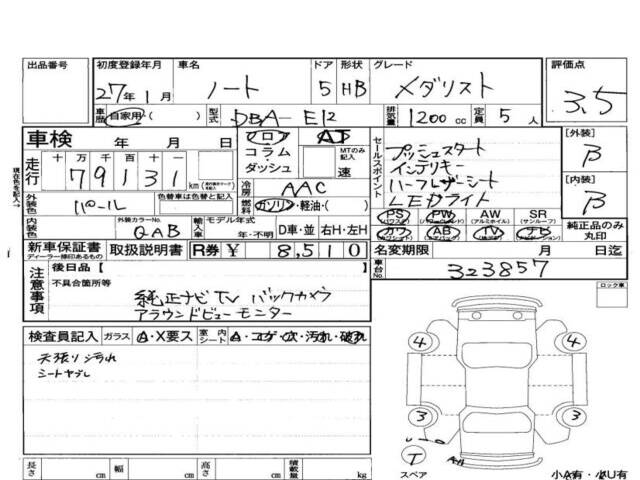 出品番号 初度登録年月 車名 ドア 形状 グレード 評価点
27年1月 ノート 5 HB メダリスト 3.5
車歴 自家用・( ) 型式 DBA-E12 排気量 1200cc 定員 5人
車検 年 月 日 フロア AT
コラム・ダッシュ MTのみ記入 速
セールスポイント
プッシュスタート
インテリキー
ハーフレザーシート
LEDライト
[外装] B
[内装] B
現在色を記入→
走行 十 万 千 百 十 一
79131 km
冷房 AAC
外装色 パール 色替車は色替と記入 燃料 ガソリン・軽油・( )
PS PW AW SR
カワ AB TV ナビ
純正品のみ丸印
内装色 外装カラーNo. QAB 輸入車 モデル年式 年・不明 D車・並 右H・左H
新車保証書 ディーラー捺印あるもの 取扱説明書 R券 ¥ 8,510
名変期限 月 日迄
車台No. 323857
注意事項 後日品[ ]
不具合箇所等
純正ナビ TV バックカメラ
アラウンドビューモニター
ロック車
検査員記入 ガラス A・X要ス 室内シート A・コゲ・穴・汚れ・破れ
天張り汚れ
シートヤブレ
4 4
3 3
T
スペア
長さ cm 幅 cm 高さ cm 積載量 kg
小A有・小U有